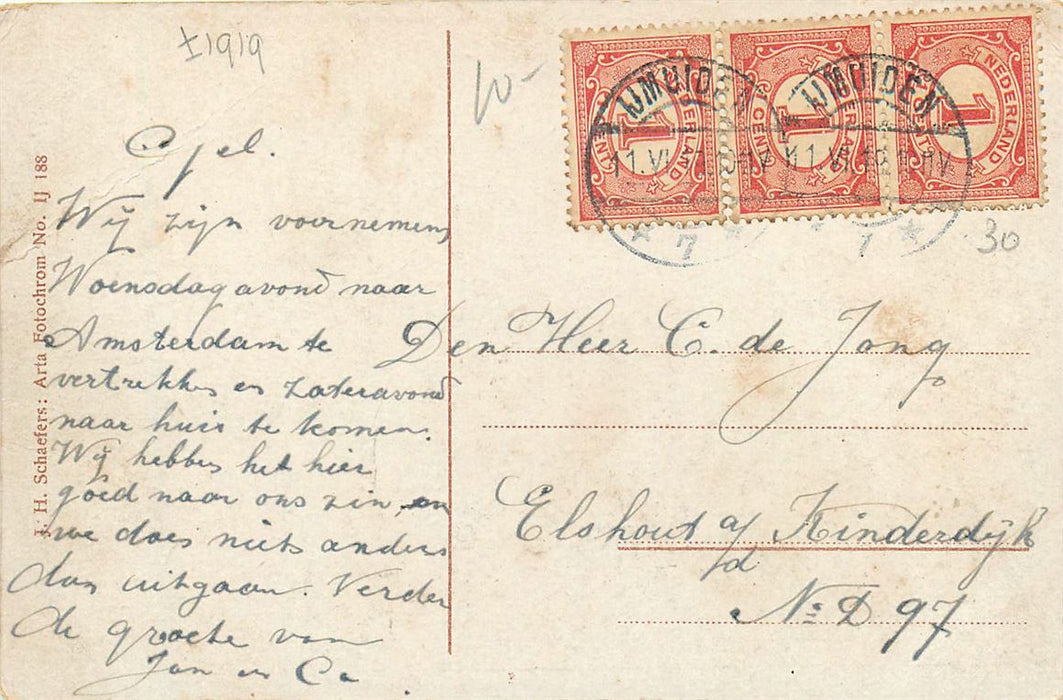 ±1919
10-
NEDERLAND
1
1 CENT
NEDERLAND
1
1 CENT
NEDERLAND
1
CENT
IJMUIDEN
IJMUIDEN
7
7
30
J. H. Schaefers: Arta Fotochrom No. IJ 188
Wij zijn voornemens
Woensdagavond naar
Amsterdam te
vertrekken en zateravond
naar huis te komen.
Wij hebben het hier
goed naar ons zin, en
we doen niets anders
dan uitgaan. Verder
de groete van
Jan en Co
Den Heer C. de Jong
Elshout a/d Kinderdijk
No D 97